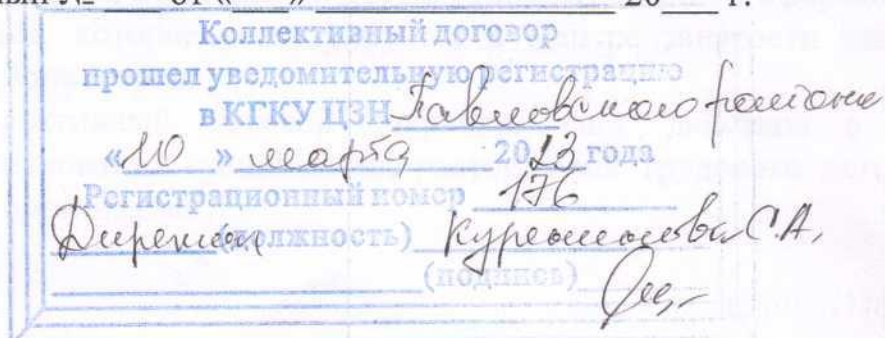 № от «___» 20___ г.
Коллективный договор
прошел уведомительную регистрацию
в КГКУ ЦЗН Павловского района
«10» марта 2023 года
Регистрационный номер 176
Директор (должность) С.А.
(подпись)